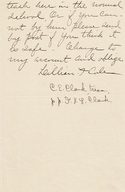 teach here in the normal
school. Or if you can-
not by him please send
by Post if you think it
so safe. Charge to
my account and oblige
William A Cole
C E Clark Mrs.
p.p. F. & G. Clark